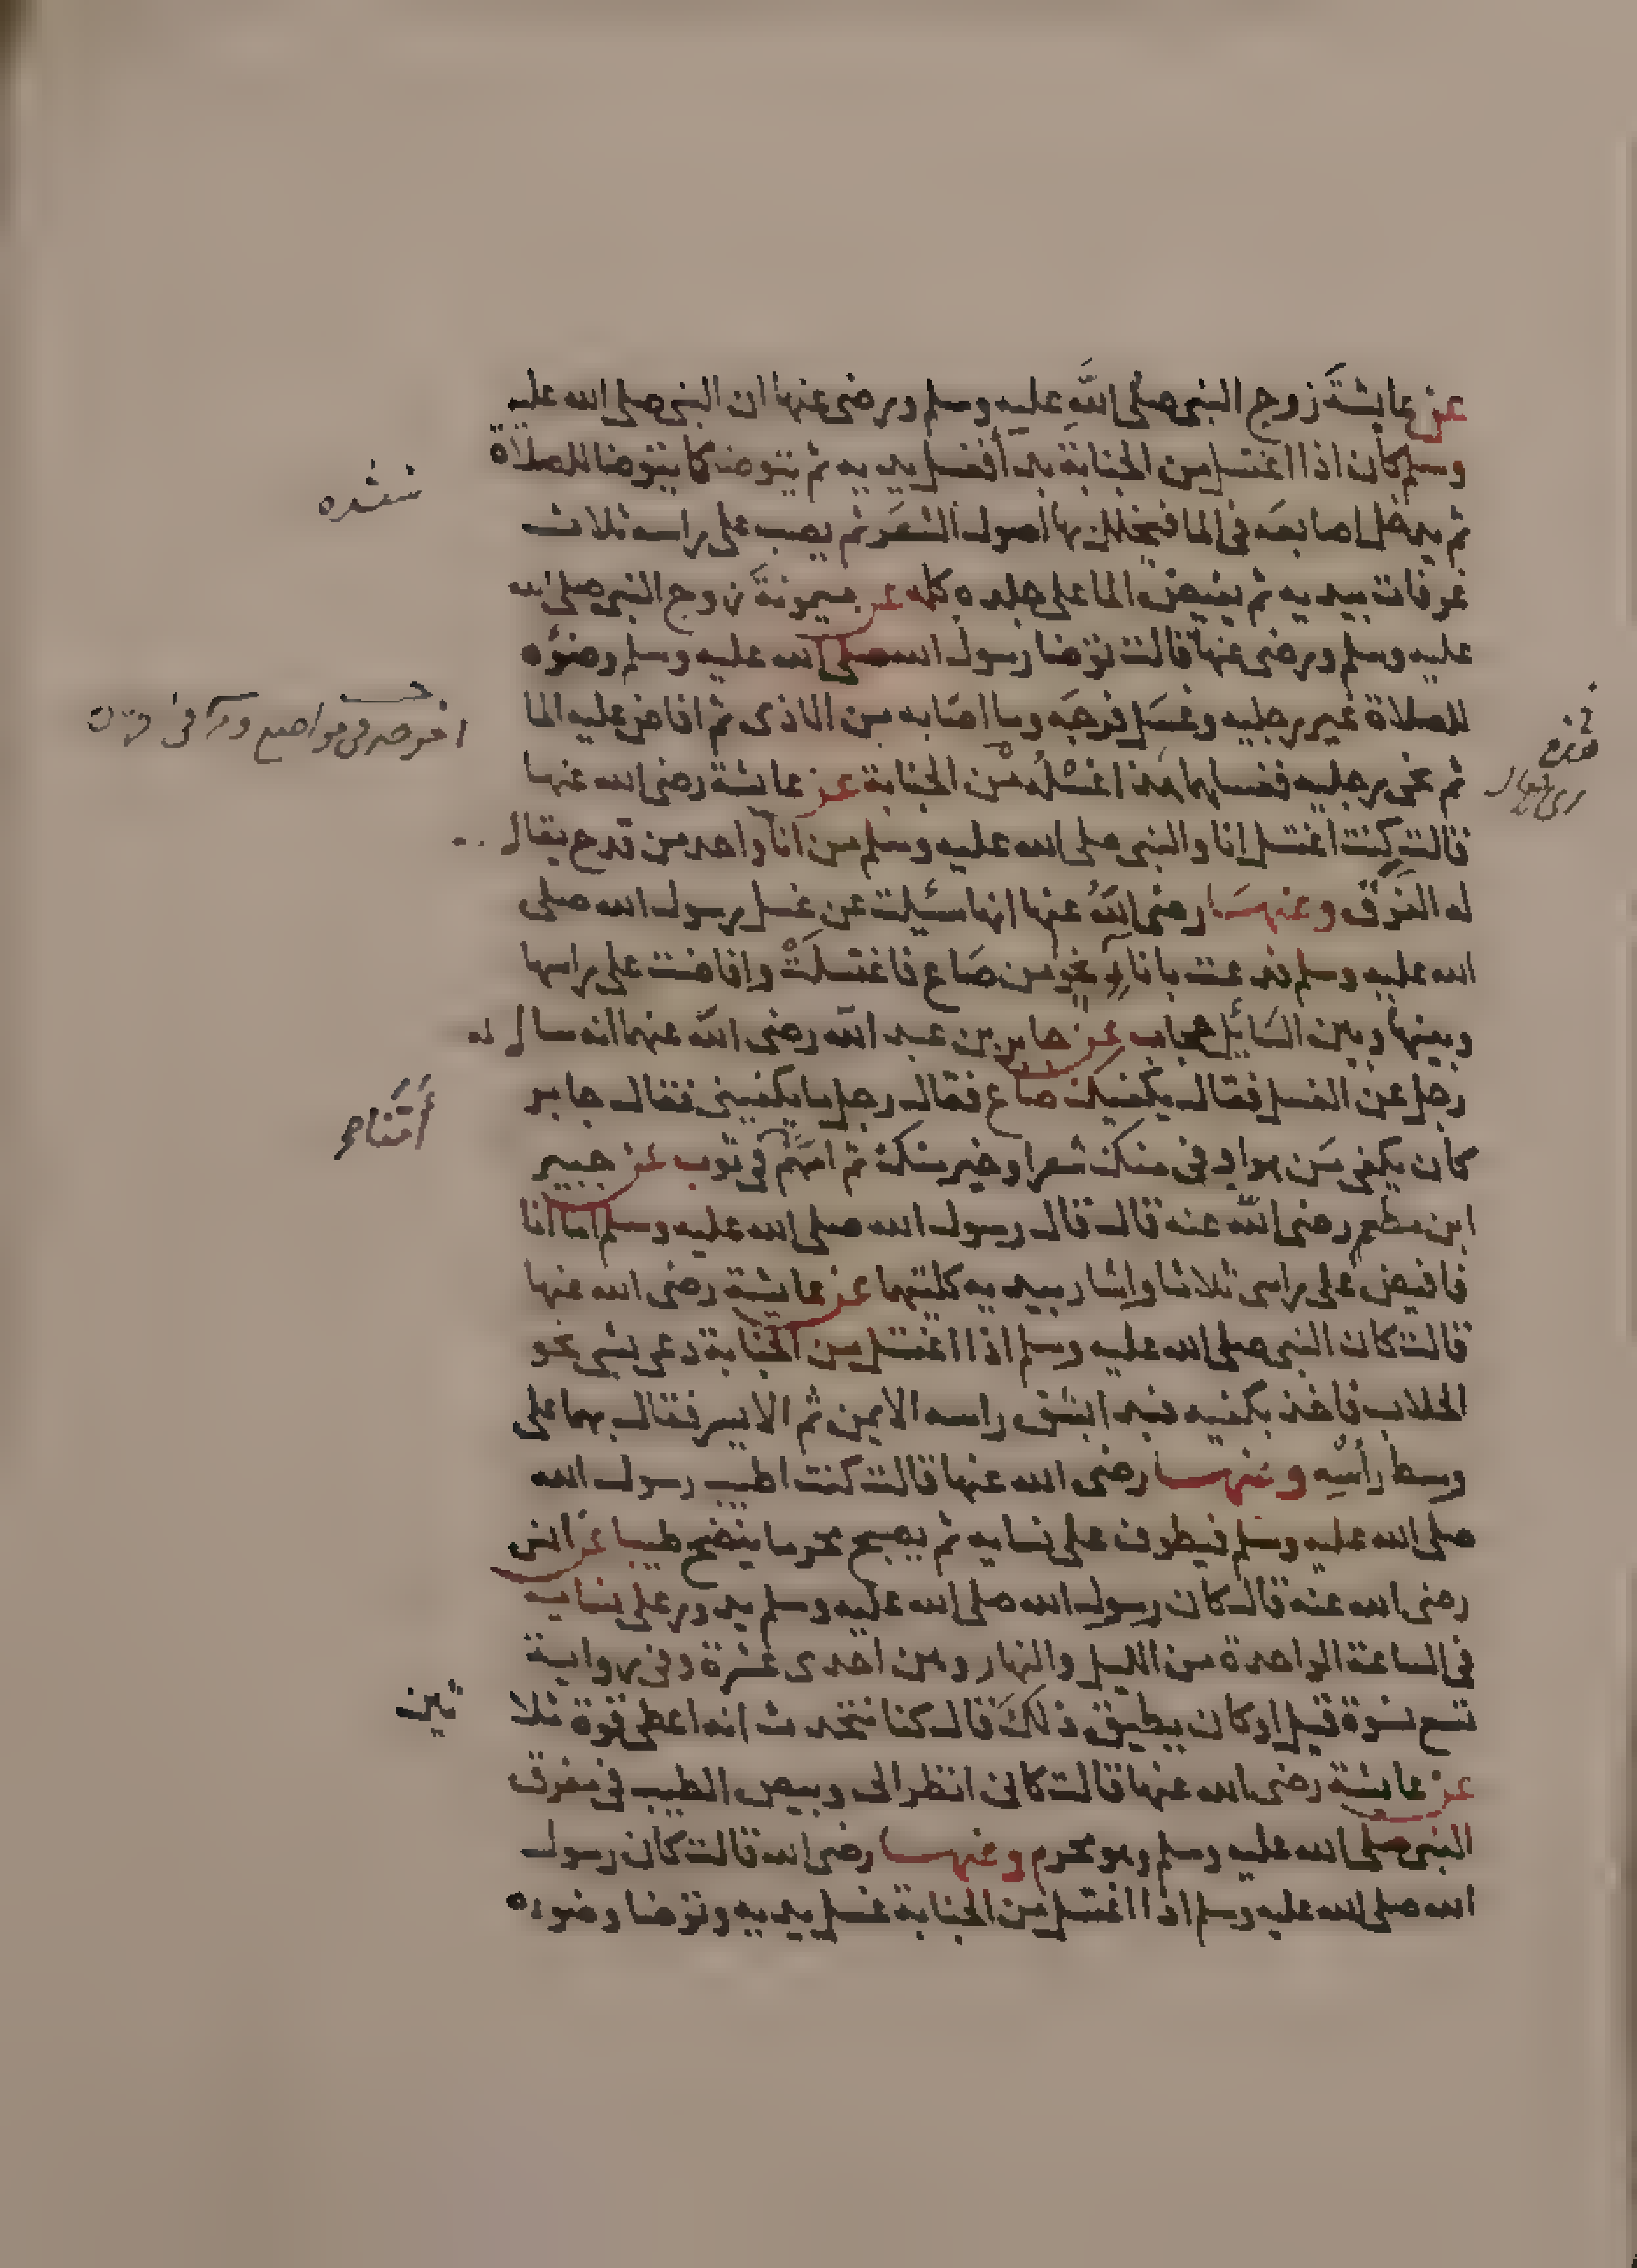 عن عايشة زوج النبي صلى الله عليه وسلم ورضى عنها ان النبي صلى الله عليه
وسلم كان اذا اغتسل من الجنابة بدأ فغسل يديه ثم يتوضا كما يتوضا للصلاة
ثم يدخل اصابعه في الما فيخلل بها اصول الشعر ثم يصب على راسه ثلاث
غرفات بيديه ثم يفيض الما على جلده كله عن ميمونة زوج النبي صلى الله
عليه وسلم ورضى عنها قالت توضا رسول الله صلى الله عليه وسلم وضوه
للصلاة غير رجليه وغسل فرجه وما اصابه من الاذى ثم افاض عليه الما
ثم نحى رجليه فغسلهما هذا غسله من الجنابة عن عايشة رضى الله عنها
قالت كنت اغتسل انا والنبي صلى الله عليه وسلم من اناء واحد من قدح يقال
له الفرق وعنها رضى الله عنها انها سئلت عن غسل رسول الله صلى
الله عليه وسلم فدعت باناء نحو من صاع فاغتسلت وافاضت على راسها
وبينها وبين السائل حجاب عن جابر بن عبد الله رضى الله عنهما انه ساله
رجل عن الغسل فقال يكفيك صاع فقال رجل ما يكفيني فقال جابر
كان يكفي من هو اوفى منك شعرا وخير منك ثم امهم في ثوب عن جبير
ابن مطعم رضى الله عنه قال قال رسول الله صلى الله عليه وسلم اما انا
فافيض على راسي ثلاثا واشار بيديه كلتيهما عن عايشة رضى الله عنها
قالت كان النبي صلى الله عليه وسلم اذا اغتسل من الجنابة دعى بشى نحو
الحلاب فاخذ بكفيه فبدا بشق راسه الايمن ثم الايسر فقال بهما على
وسط رأسه وعنها رضى الله عنها قالت كنت اطيب رسول الله
صلى الله عليه وسلم فيطوف على نسايه ثم يصبح محرما ينضح طيبا عن انس
رضى الله عنه قال كان رسول الله صلى الله عليه وسلم يدور على نسايه
في الساعة الواحدة من الليل والنهار وهن احدى عشرة وفي رواية
تسع نسوة قيل اوكان يطيق ذلك قال كنا نتحدث انه اعطى قوة ثلا
ثين
عن عايشة رضى الله عنها قالت كاني انظر الى وبيص الطيب في مفرق
النبي صلى الله عليه وسلم وهو محرم وعنها رضى الله قالت كان رسول
الله صلى الله عليه وسلم اذا اغتسل من الجنابة غسل يديه وتوضا وضوءه